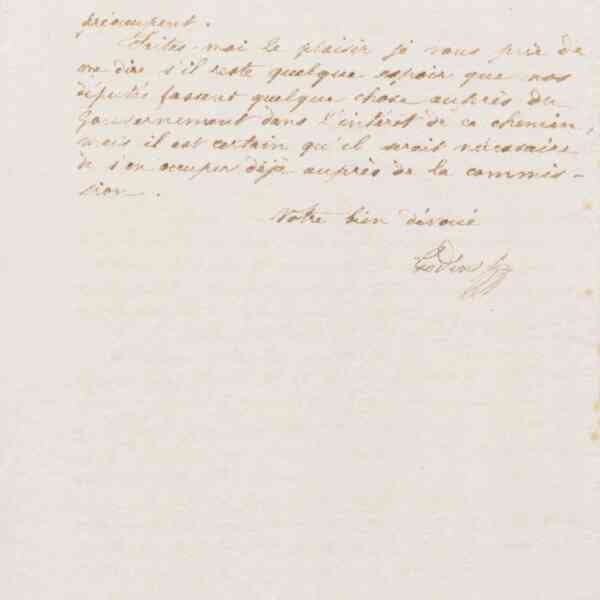 préoccupent.
Faites-moi le plaisir je vous prie de
me dire s'il reste quelque espoir que nos
députés fassent quelque chose auprès du
Gouvernement dans l'intérêt de ce chemin,
mais il est certain qu'il serait nécessaire
de s'en occuper déjà auprès de la commis-
sion.
Votre bien dévoué
Godin